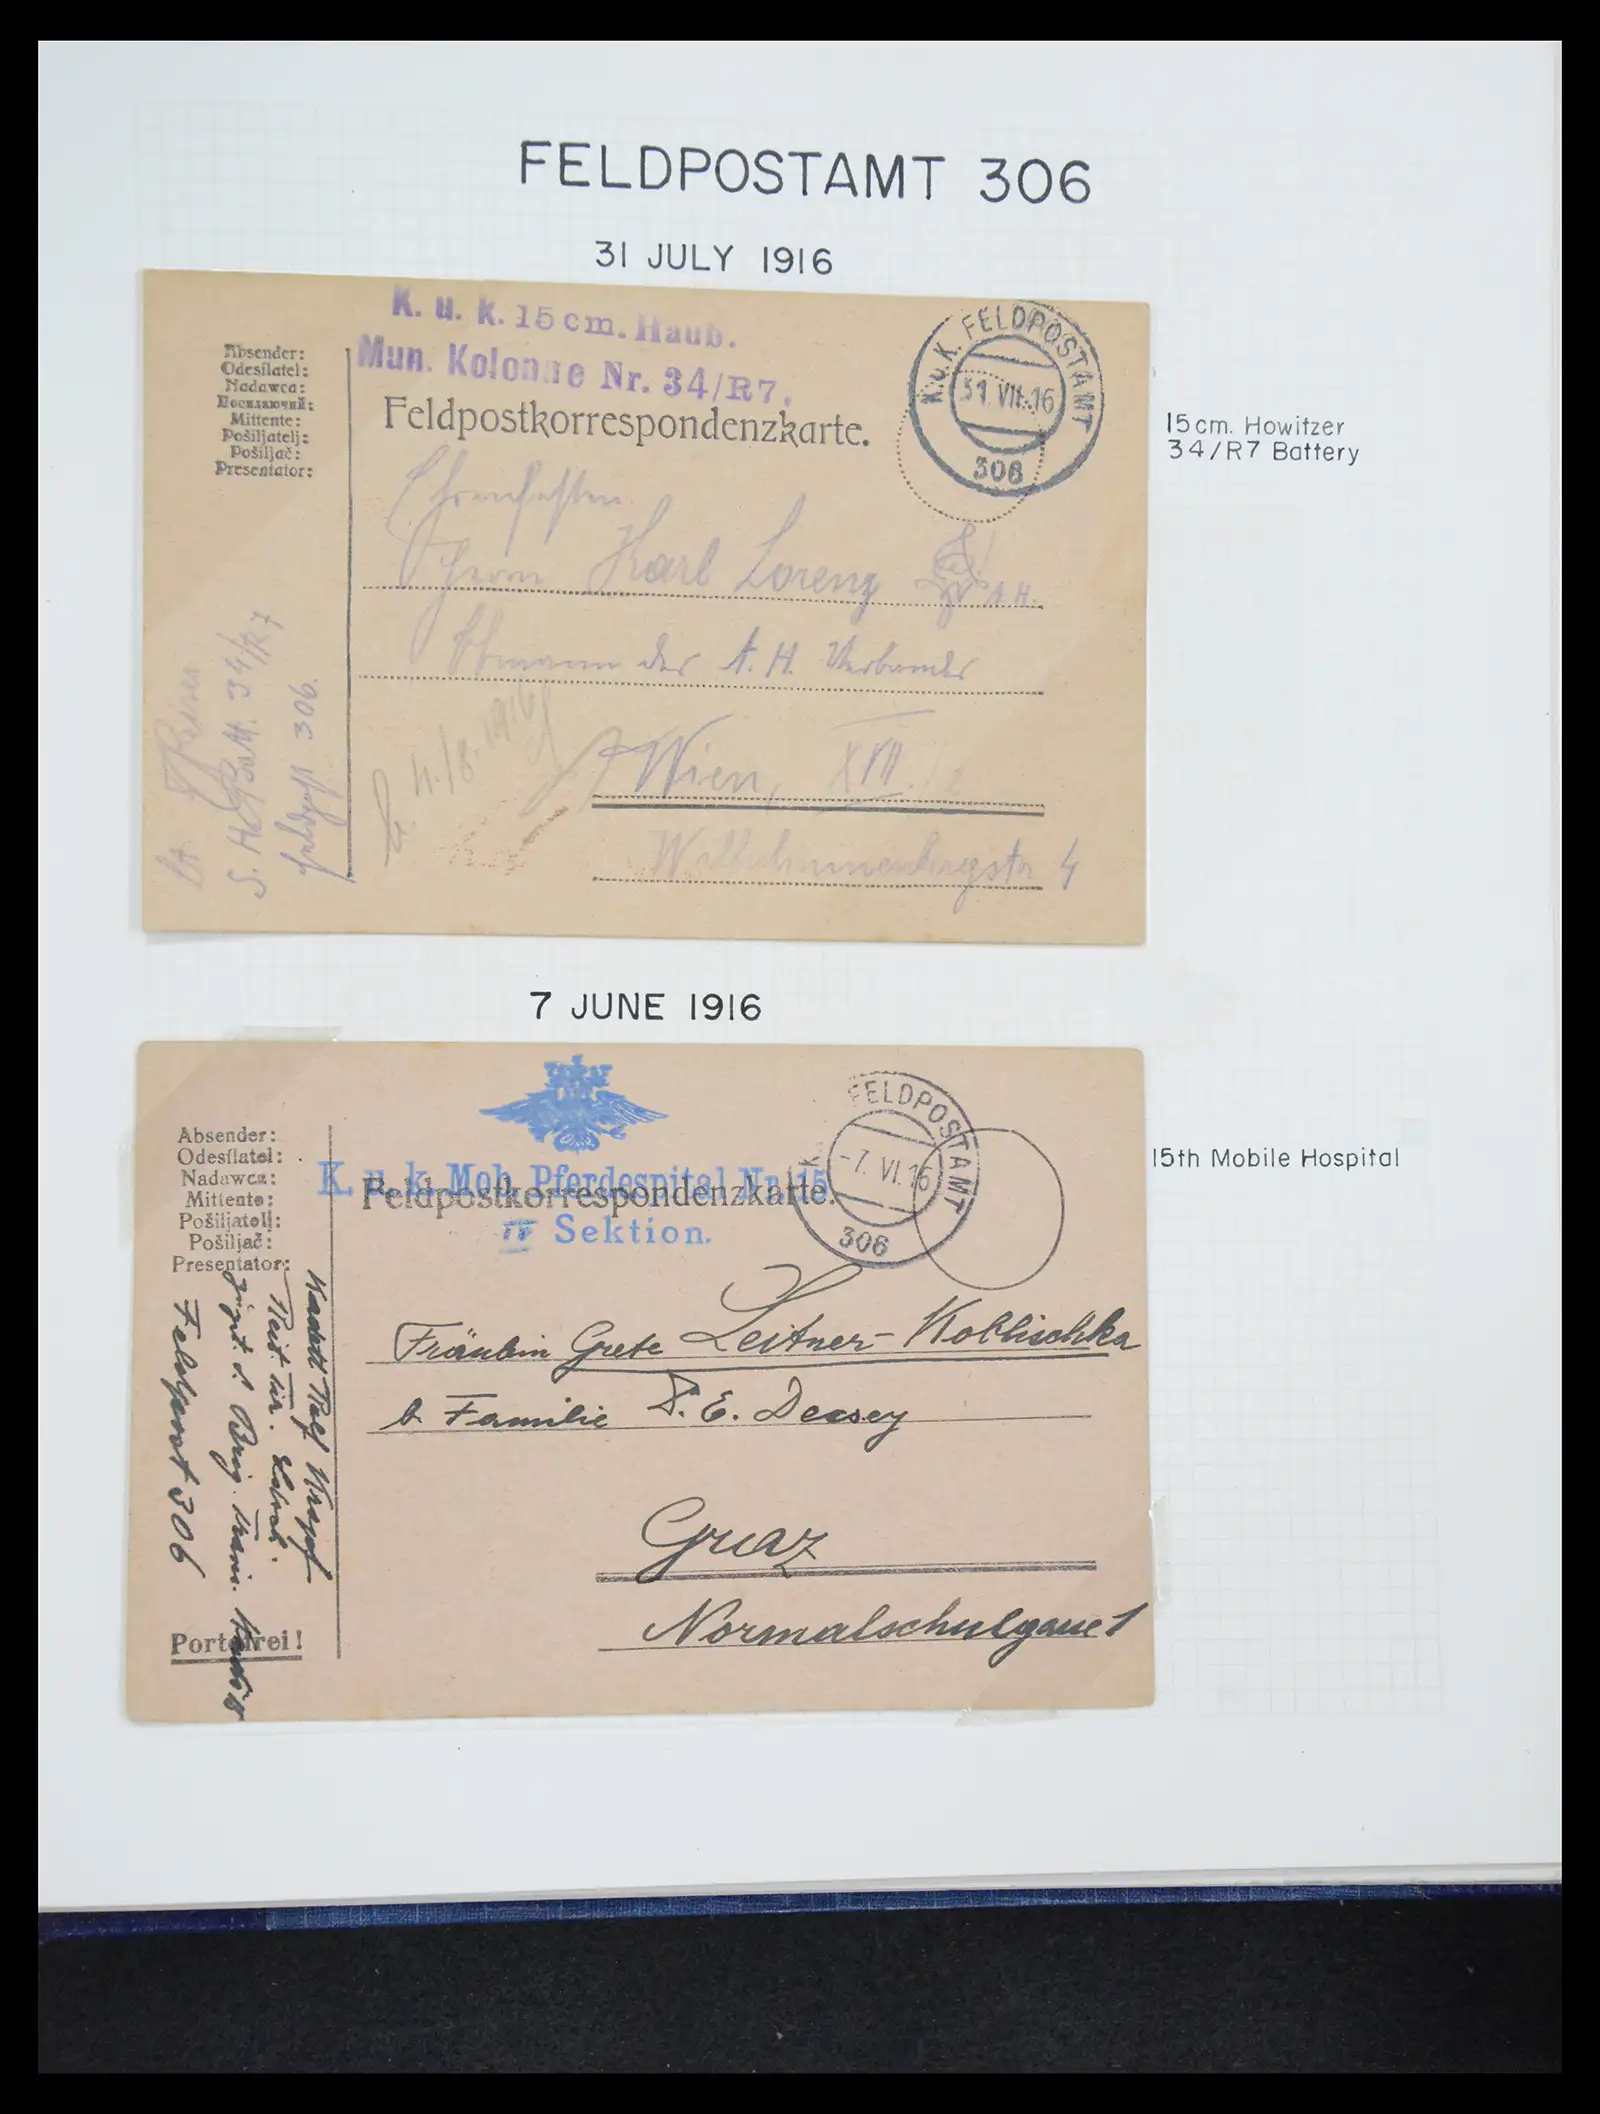 FELDPOSTAMT 306
31 JULY 1916
K. u. k. 15 cm. Haub.
Mun. Kolonne Nr. 34/R7.
Feldpostkorrespondenzkarte.
Absender:
Odesílatel:
Nadawca:
Посилаючий:
Mittente:
Pošiljatelj:
Pošiljač:
Presentator:
K.u.K. FELDPOSTAMT
31. VII. 16
306
15 cm. Howitzer
34/R7 Battery
Herrn Karl Lorenz
Obmann des A. H. Verbandes
Wien, XVI./2
Wilhelminenbergstr 4
4./8. 1916
34/R7
Feldpost 306.
7 JUNE 1916
K. u. k. Mob. Pferdespital Nr. 15
IV Sektion.
Feldpostkorrespondenzkarte.
Absender:
Odesílatel:
Nadawca:
Mittente:
Pošiljatelj:
Pošiljač:
Presentator:
FELDPOSTAMT
-7. VI. 16
306
15th Mobile Hospital
Fräulein Grete Leitner-Koblischka
b. Familie D. E. Decsey
Graz
Normalschulgasse 1
Feldpost 306
Portofrei!